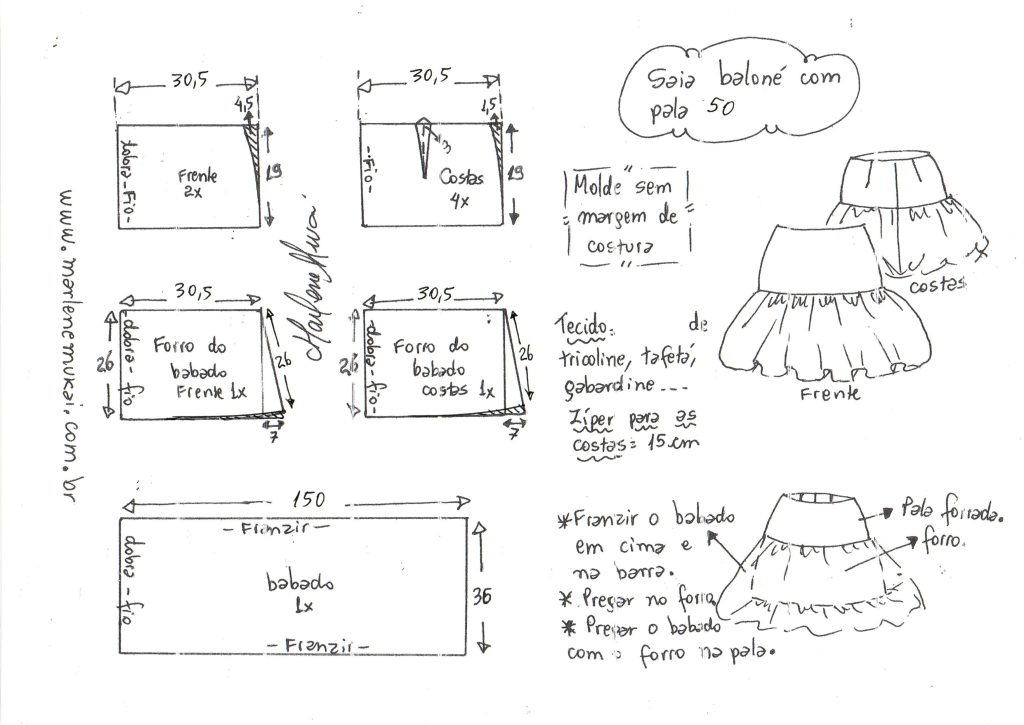 Saia baloné com
pala 50
30,5
4,5
dobra-Fio-
Frente
2x
19
30,5
1,5
-Fio-
3
Costas
4x
19
Molde sem
margem de
costura
costas
Frente
www.marlenemukai.com.br
30,5
26
dobra-fio
Forro do
babado
Frente 1x
26
7
30,5
26
dobra-fio-
Forro do
babado
costas 1x
26
7
Tecido: de
tricoline, tafetá,
gabardine...
Zíper para as
costas = 15 cm
150
- Franzir -
dobra-fio
babado
1x
36
- Franzir -
*Franzir o babado
em cima e
na barra.
* Pregar no forro
* Pregar o babado
com o forro na pala.
Pala forrada.
forro.